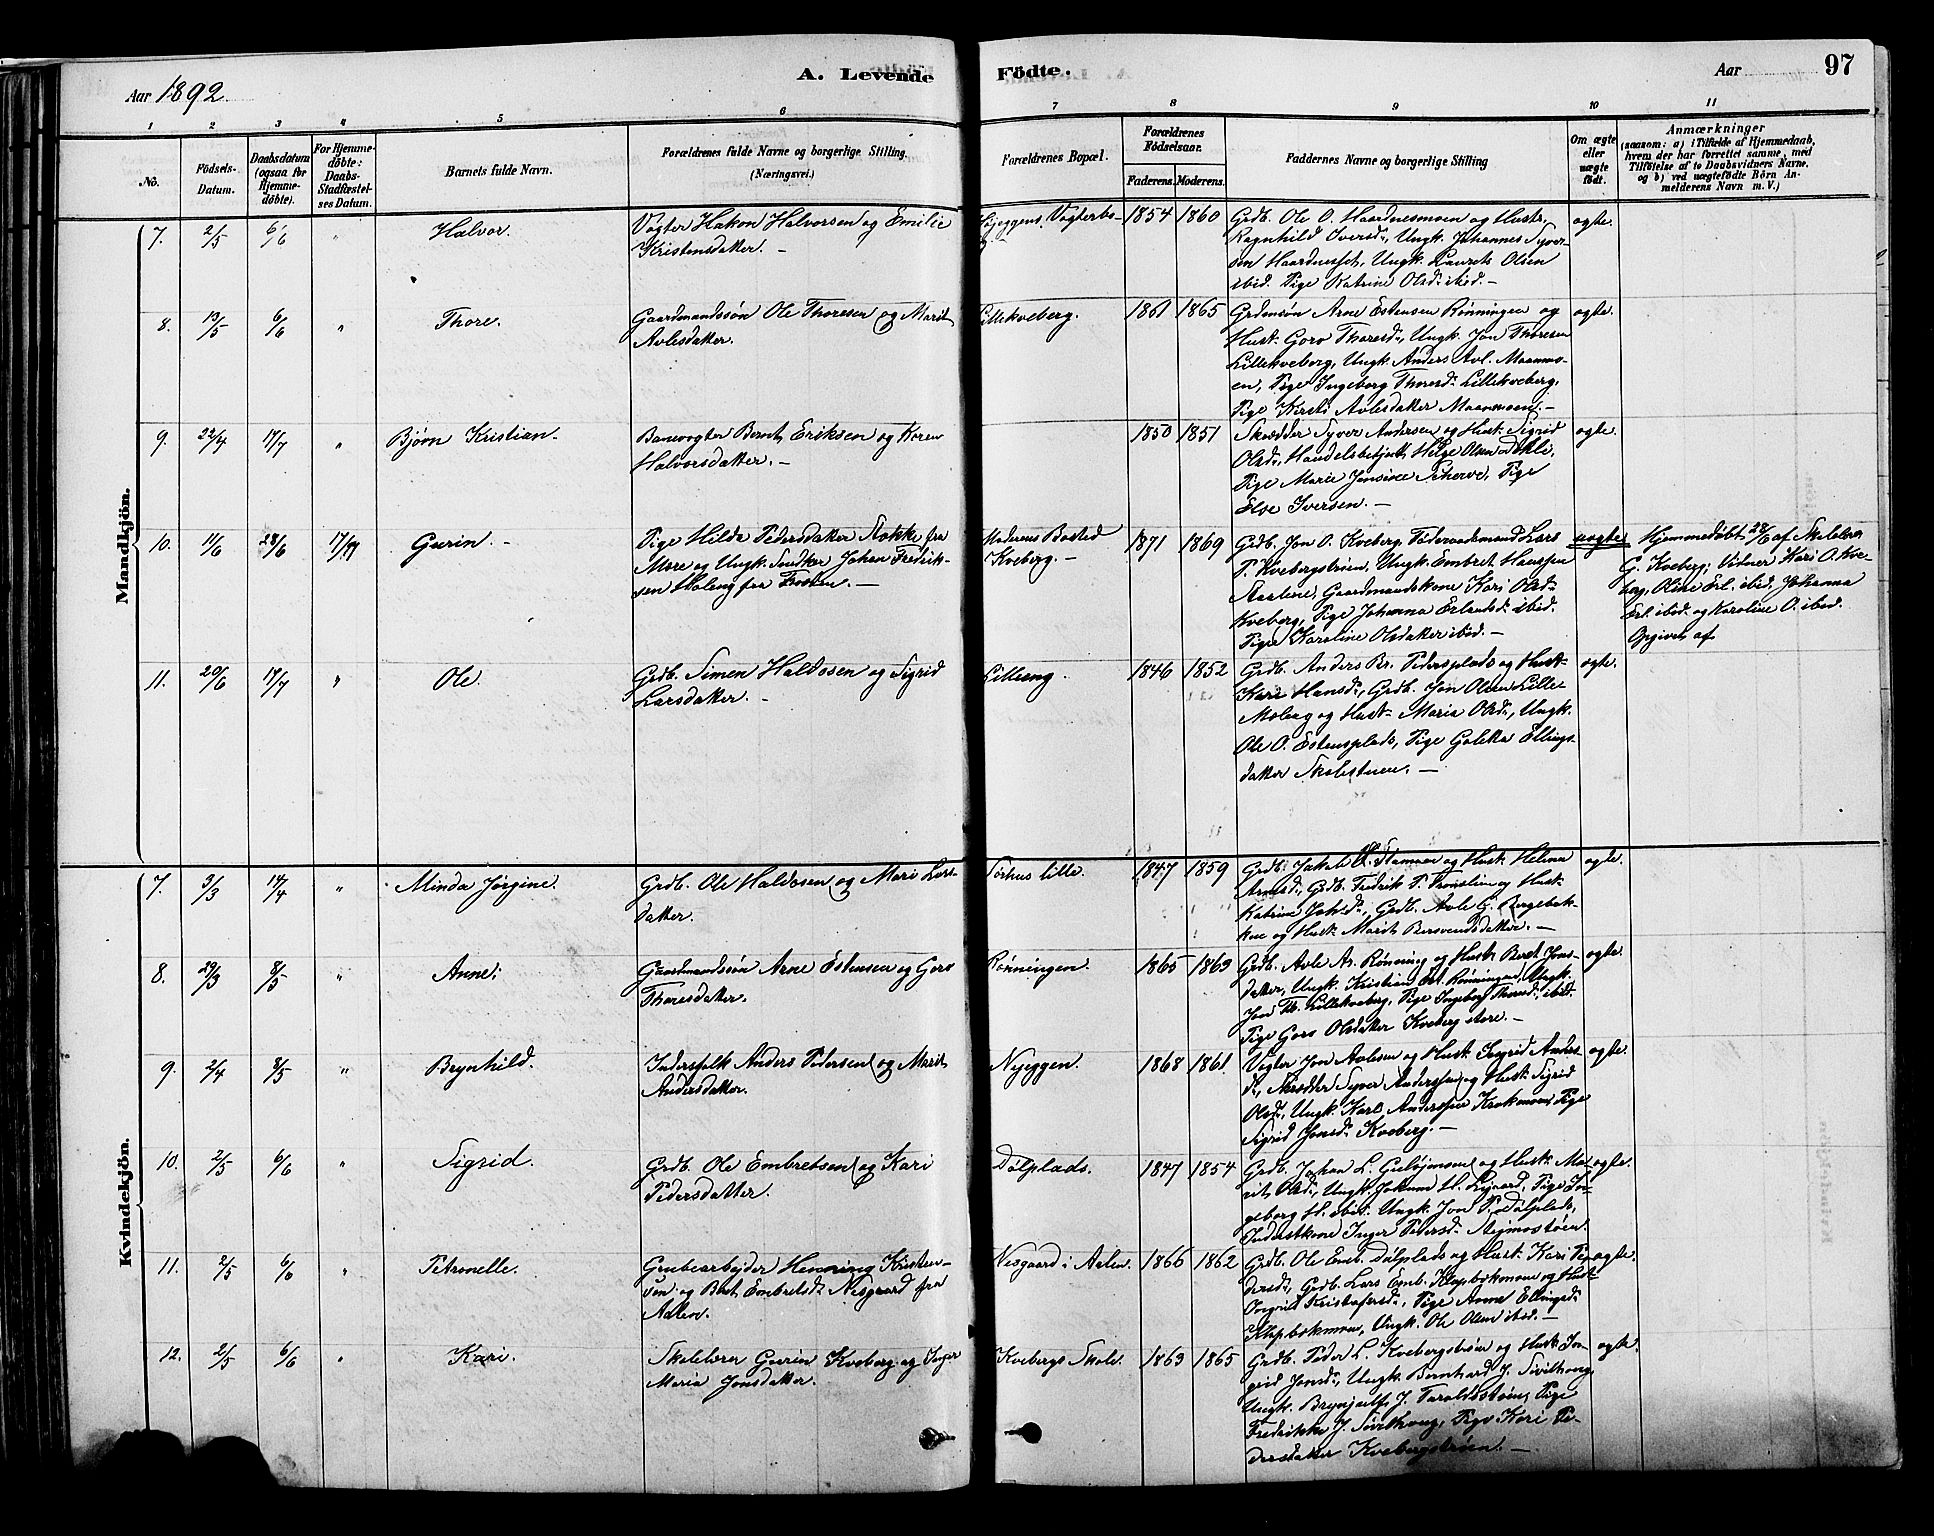 A. Levende Födte.
Aar 1892
Aar 97
1 2 3 4 5 6 7 8 9 10 11
No.
Födsels-Datum.
Daabsdatum (ogsaa for Hjemmedöbte).
For Hjemmedöbte: Daabs-Stadfæstelses Datum.
Barnets fulde Navn.
Forældrenes fulde Navne og borgerlige Stilling (Næringsvei.)
Forældrenes Bopæl.
Forældrenes Födselsaar.
Faderens. Moderens.
Faddernes Navne og borgerlige Stilling
Om ægte eller uægte födt.
Anmærkninger
(saasom: a) i Tilfælde af Hjemmedaab, hvem der har forrettet samme, med Tilföielse af to Daabsvidners Navne, og b) ved uægtefödte Börn Anmelderens Navn m. V.)
Mandkjön.
7. 2/5 6/6 " Halvor. Vogter Hakon Halvorsen og Emilie
Kristensdatter. —
Vogterbo- 1854 1860 Grdb. Ole O. Haardnesmoen og Hust.
Ragnhild Iversd., Ungk. Johannes Syver-
sen Haardnesset, Ungk. Laurets Olsen
ibid. Pige Katrine Olsd. ibid. —
ægte.
8. 13/5 6/6 " Thore. Gaardmandssøn Ole Thoresen og Marit
Avlesdatter.
Lillekveberg. 1861 1865 Grdmsøn Arne Estensen Rønningen og
Hust. Goro Thoresd., Ungk. Jon Thoresen
Lillekveberg, Ungk. Anders Avl. Maanmo-
en, Pige Ingeborg Thoresd. Lillekveberg,
Pige Kirsti Avlesdatter Maanmoen. —
ægte.
9. 22/4 17/7 " Bjørn Kristian. Banevogter Bernt Eriksen og Karen
Halvorsdatter. —
1850 1851 Skrædder Syver Andersen og Hust. Sigrid
Olsd., Handelsbetjent Helge Olsen
Pige Marie Jensine Scherve, Pige
Iversen. —
ægte.
10. 11/6 28/6 17/7 Guerin. — Pige Hilda Pedersdatter Stokke fra
Møre og Ungk. Snedker Johan Fredrik-
sen Holeng fra Trosten. —
Moderens Bosted
Kveberg. — 1871 1869 Grdb. Jon O. Kveberg, Føderaadsmand Lars
P. Kvebergstrøen, Ungk. Embret Hanssen
Gaardmandskone Kari Olsd.
Kveberg, Pige Johanna Erlandsd. ibid.
Pige Karoline Olsdatter ibid. —
uægte
Hjemmedøbt 28/6 af Skolelærer
G. Kveberg; Vidner Kari O. Kve-
berg, Oline Erl. ibid. Johanna
Erl. ibid. og Karoline O. ibid.
Opgivet af
11. 20/6 17/7 " Ole. Grdb. Simen Haldosen og Sigrid
Larsdatter. —
Lilleeng. 1846 1852 Grdb. Anders Br. Pedersplads og Hust.
Kari Hansd., Grdb. Jon Olsen Lille-
Moleng og Hust. Maria Olsd., Ungk.
Ole O. Estensplads, Pige Goletta Ellings-
datter Skolestuen. —
ægte.
Kvindekjön.
7. 3/3 14/4 " Minda Jørgine. Grdb. Ole Haldosen og Mari Lars-
datter.
Tørhus lille. 1847 1859 Grdb. Jakob og Hust. Helena
Arnesd., Grdb. Fredrik P. Tronslien og Hust.
Katrine Johsd., Grdb. Avle G. Bergebak-
ken og Hust. Marit Bersvendsdatter. —
ægte.
8. 29/3 8/5 " Anne. Gaardmandssøn Arne Estensen og Goro
Thoresdatter.
Rønningen. 1865 1863 Grdb. Avle Ar. Rønning og Hust. Beret Jons-
datter, Ungk. Kristian Est. Rønningen, Ungk.
Jon Th. Lillekveberg, Pige Ingeborg Thoresd. ibid.
Pige Goro Olsdatter Kveberg store. —
ægte.
9. 2/4 8/5 " Brynhild. Inderstfolk Anders Pedersen og Marit
Andersdatter.
Nyeggen. 1868 1861. Vogter Jon Avlesen og Hust. Ingrid Anders-
d., Skrædder Syver Andersen og Hust. Sigrid
Olsd., Ungk. Karl Anderssen Krokmoen, Pige
Sigrid Jonsd. Kveberg. —
ægte.
10. 2/5 6/6 " Sigrid. Grdb. Ole Embretsen og Kari
Pedersdatter.
Dølplads. 1847 1854 Grdb. Johan L. og Hust. Ma-
rit Olsd., Ungk. Jokum H. Pige In-
geborg H. ibid. Ungk. Jon P. Dølplads,
Inderstkone Inger Pedersd.
ægte.
11. 2/5 6/6 " Petronelle. Grubearbejder Henning Kristen-
sen og Beret Embretsd. Nesgaard fra
Aalen.
Nesgaard i Aalen. 1866 1862 Grdb. Ole Emb. Dølplads og Hust. Kari Pe-
dersd., Grdb. Lars Emb. Klapbokmoen og Hust.
Ingrid Kristofersd., Pige Anne Ellingsd.
Klapbokmoen, Ungk. Ole Olsen ibid. —
ægte.
12. 2/5 6/6 " Kari. Skolelærer Guerin Kveberg og Inger
Maria Jonsdatter.
Kvebergs Skole. 1863 1865 Grdb. Peder L. Kvebergstrøen og Hust. In-
grid Jonsd., Ungk. Bernhard J. Sivilhaug
Ungk. Brynjulf J. Taraldsstøen, Pige
Fredrikke J. Sivilhaug, Pige Kari Pe-
dersdatter Kvebergstrøen. —
ægte